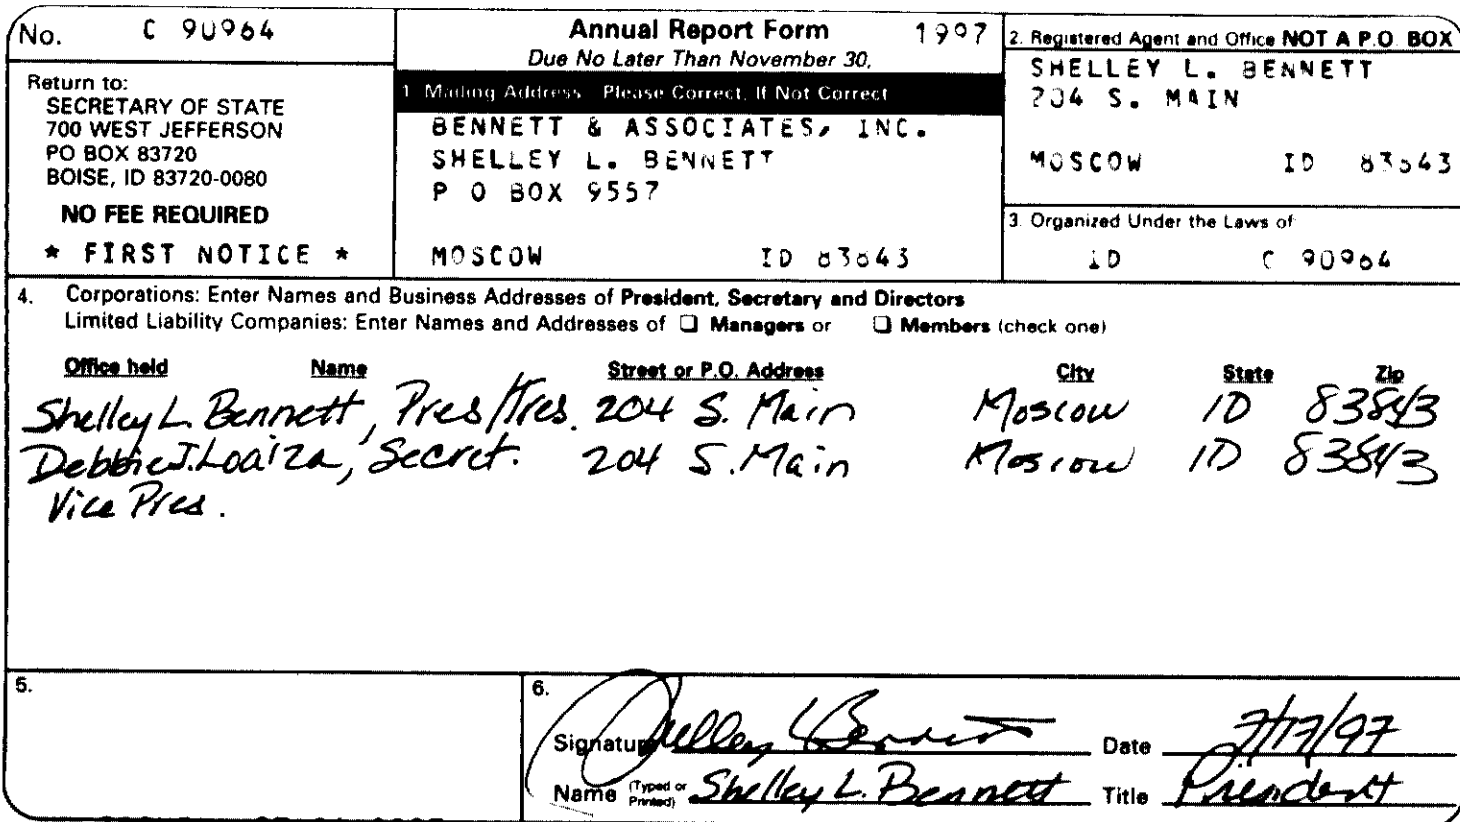 No. C 90964
Annual Report Form 1997
Due No Later Than November 30,
Return to:
SECRETARY OF STATE
700 WEST JEFFERSON
PO BOX 83720
BOISE, ID 83720-0080
NO FEE REQUIRED
* FIRST NOTICE *
1 Mailing Address Please Correct, If Not Correct
BENNETT & ASSOCIATES, INC.
SHELLEY L. BENNETT
P O BOX 9557
MOSCOW ID 83843
2. Registered Agent and Office NOT A P.O. BOX
SHELLEY L. BENNETT
204 S. MAIN
MOSCOW ID 83843
3. Organized Under the Laws of
ID C 90964
4. Corporations: Enter Names and Business Addresses of President, Secretary and Directors
Limited Liability Companies: Enter Names and Addresses of ❑ Managers or ❑ Members (check one)
Office held Name Street or P.O. Address City State Zip
Shelley L. Bennett, Pres/Tres. 204 S. Main Moscow ID 83843
Debbie J. Loaiza, Secret. 204 S. Main Moscow ID 83843
Vice Pres.
5.
6.
Signature Shelley L Bennett Date 7/17/97
Name (Typed or Printed) Shelley L. Bennett Title President